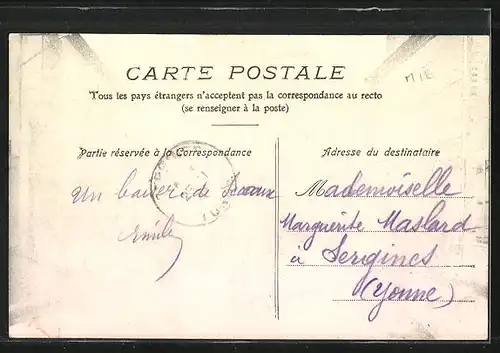 CARTE POSTALE
Tous les pays étrangers n'acceptent pas la correspondance au recto
(se renseigner à la poste)
MIE
Partie réservée à la Correspondance
Un baiser de
Emile
Adresse du destinataire
Mademoiselle
Marguerite Maslard
à Sergines
(Yonne)